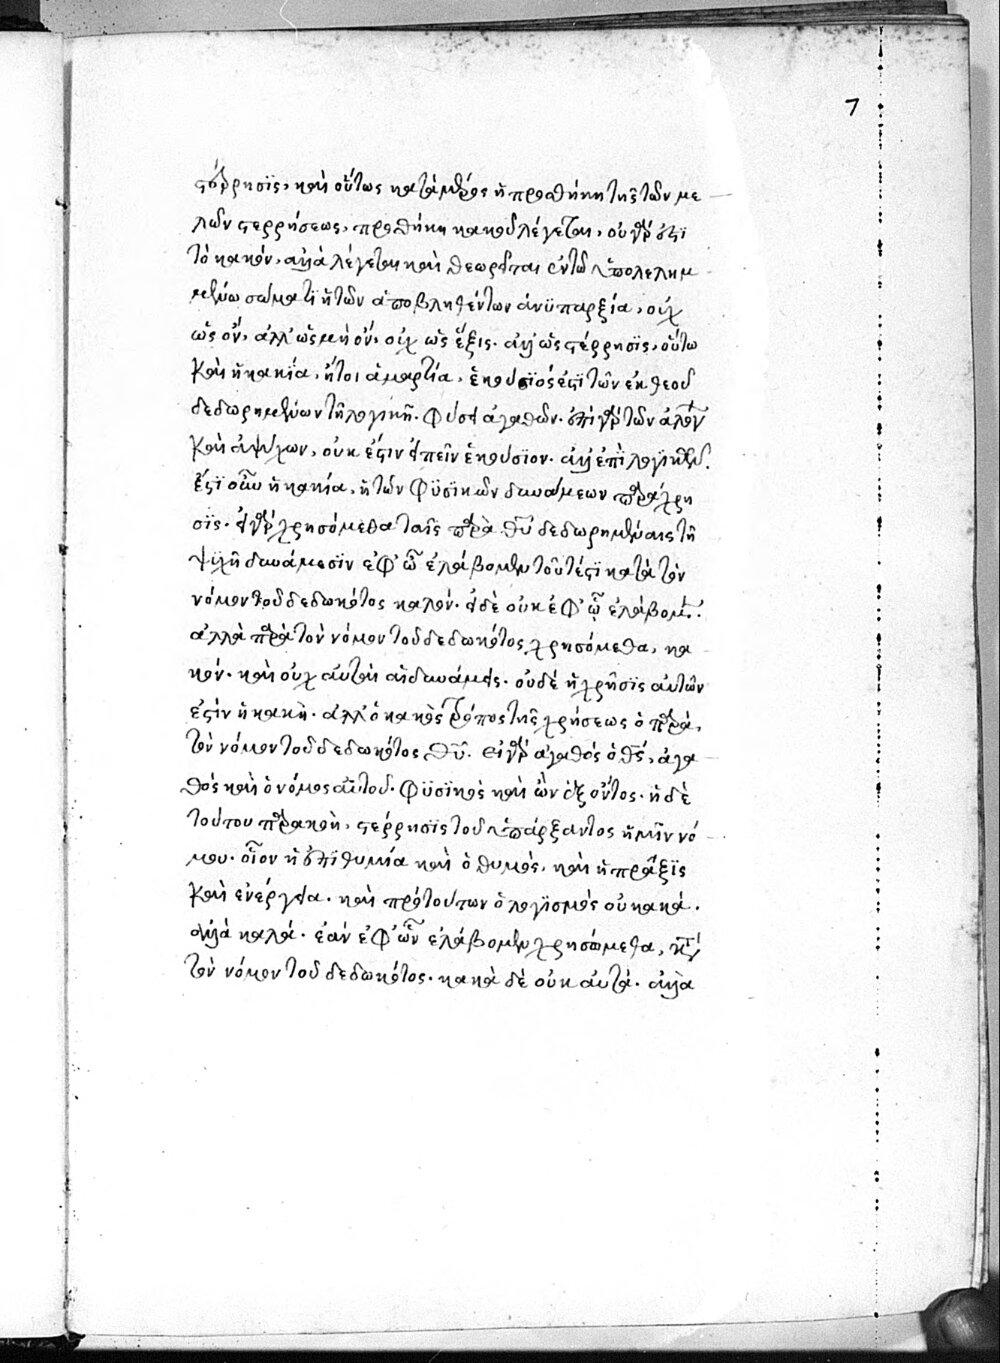 7
στέρησις, καὶ οὕτως κατὰ μέρος ἡ προσθήκη τῆς τῶν με
λῶν στερρήσεως, προσθήκη κακοῦ λέγεται, οὐ γάρ ἐστι
τὸ κακόν, ἀλλὰ λέγεται καὶ θεωρεῖται ἐν τῶ ὑπολελημ
μένω σώματι ἡ τῶν ἀποβληθέντων ἀνϋπαρξία, οὐχ
ὡς ὄν, ἀλλ' ὡς μὴ ὄν, οὐχ ὡς ἕξις. ἀλλ' ὡς στέρρησϊς, οὕτω
καὶ ἡ κακία, ἤτοι ἁμαρτία, ἑκούσϊός ἐστϊ τῶν ἐκ θεοῦ
δεδωρημένων τῆ λογικῆ φύσει ἀγαθῶν. ἐπὶ γὰρ τῶν ἀλόγων
καὶ ἀψύχων, οὐκ ἔστιν εἰπεῖν ἑκούσϊον. ἀλλ' ἐπὶ λογικῶν.
ἔστϊ οὖν ἡ κακία, ἡ τῶν φϋσϊκῶν δυνάμεων παράχρη
σϊς. εἰ γὰρ χρησόμεθα ταῖς παρὰ θεοῦ δεδωρημέναις τῆ
ψϋχῆ δυνάμεσϊν ἐφ' ὧ ἐλάβομεν τοῦτέστϊ κατὰ τὸν
νόμον τοῦ δεδωκότος καλόν. εἰ δὲ οὐκ ἐφ' ᾧ ἐλάβομεν.
ἀλλὰ παρὰ τὸν νόμον τοῦ δεδωκότος χρησόμεθα, κα
κόν. καὶ οὐχ αὗται αἱ δυνάμεις. οὐδὲ ἡ χρῆσϊς αὐτῶν
ἐστὶν ἡ κακὴ. ἀλλ' ὁ κακὸς τρόπος τῆς χρήσεως ὁ παρὰ
τὸν νόμον τοῦ δεδωκότος θεοῦ. εἰ γὰρ ἀγαθός ὁ θεός, ἀγα
θὸς καὶ ὁ νόμος αὐτοῦ. φϋσϊκὸς καὶ ὢν ἐξ ὄντος. ἡ δὲ
τούτου παρακοὴ, στέρρησϊς τοῦ ὑπάρξαντος ἡμῖν νό
μου. οἷον ἡ ἐπϊθυμία καὶ ὁ θυμός, καὶ ἡ πρᾶξϊς
καὶ ἐνέργεια. καὶ πρὸ τούτων ὁ λογϊσμὸς οὐ κακά.
ἀλλὰ καλά. ἐάν ἐφ' ὧν ἐλάβομεν χρησώμεθα, κατὰ
τὸν νόμον τοῦ δεδωκότος. κακὰ δὲ οὐκ αὐτά. ἀλλὰ